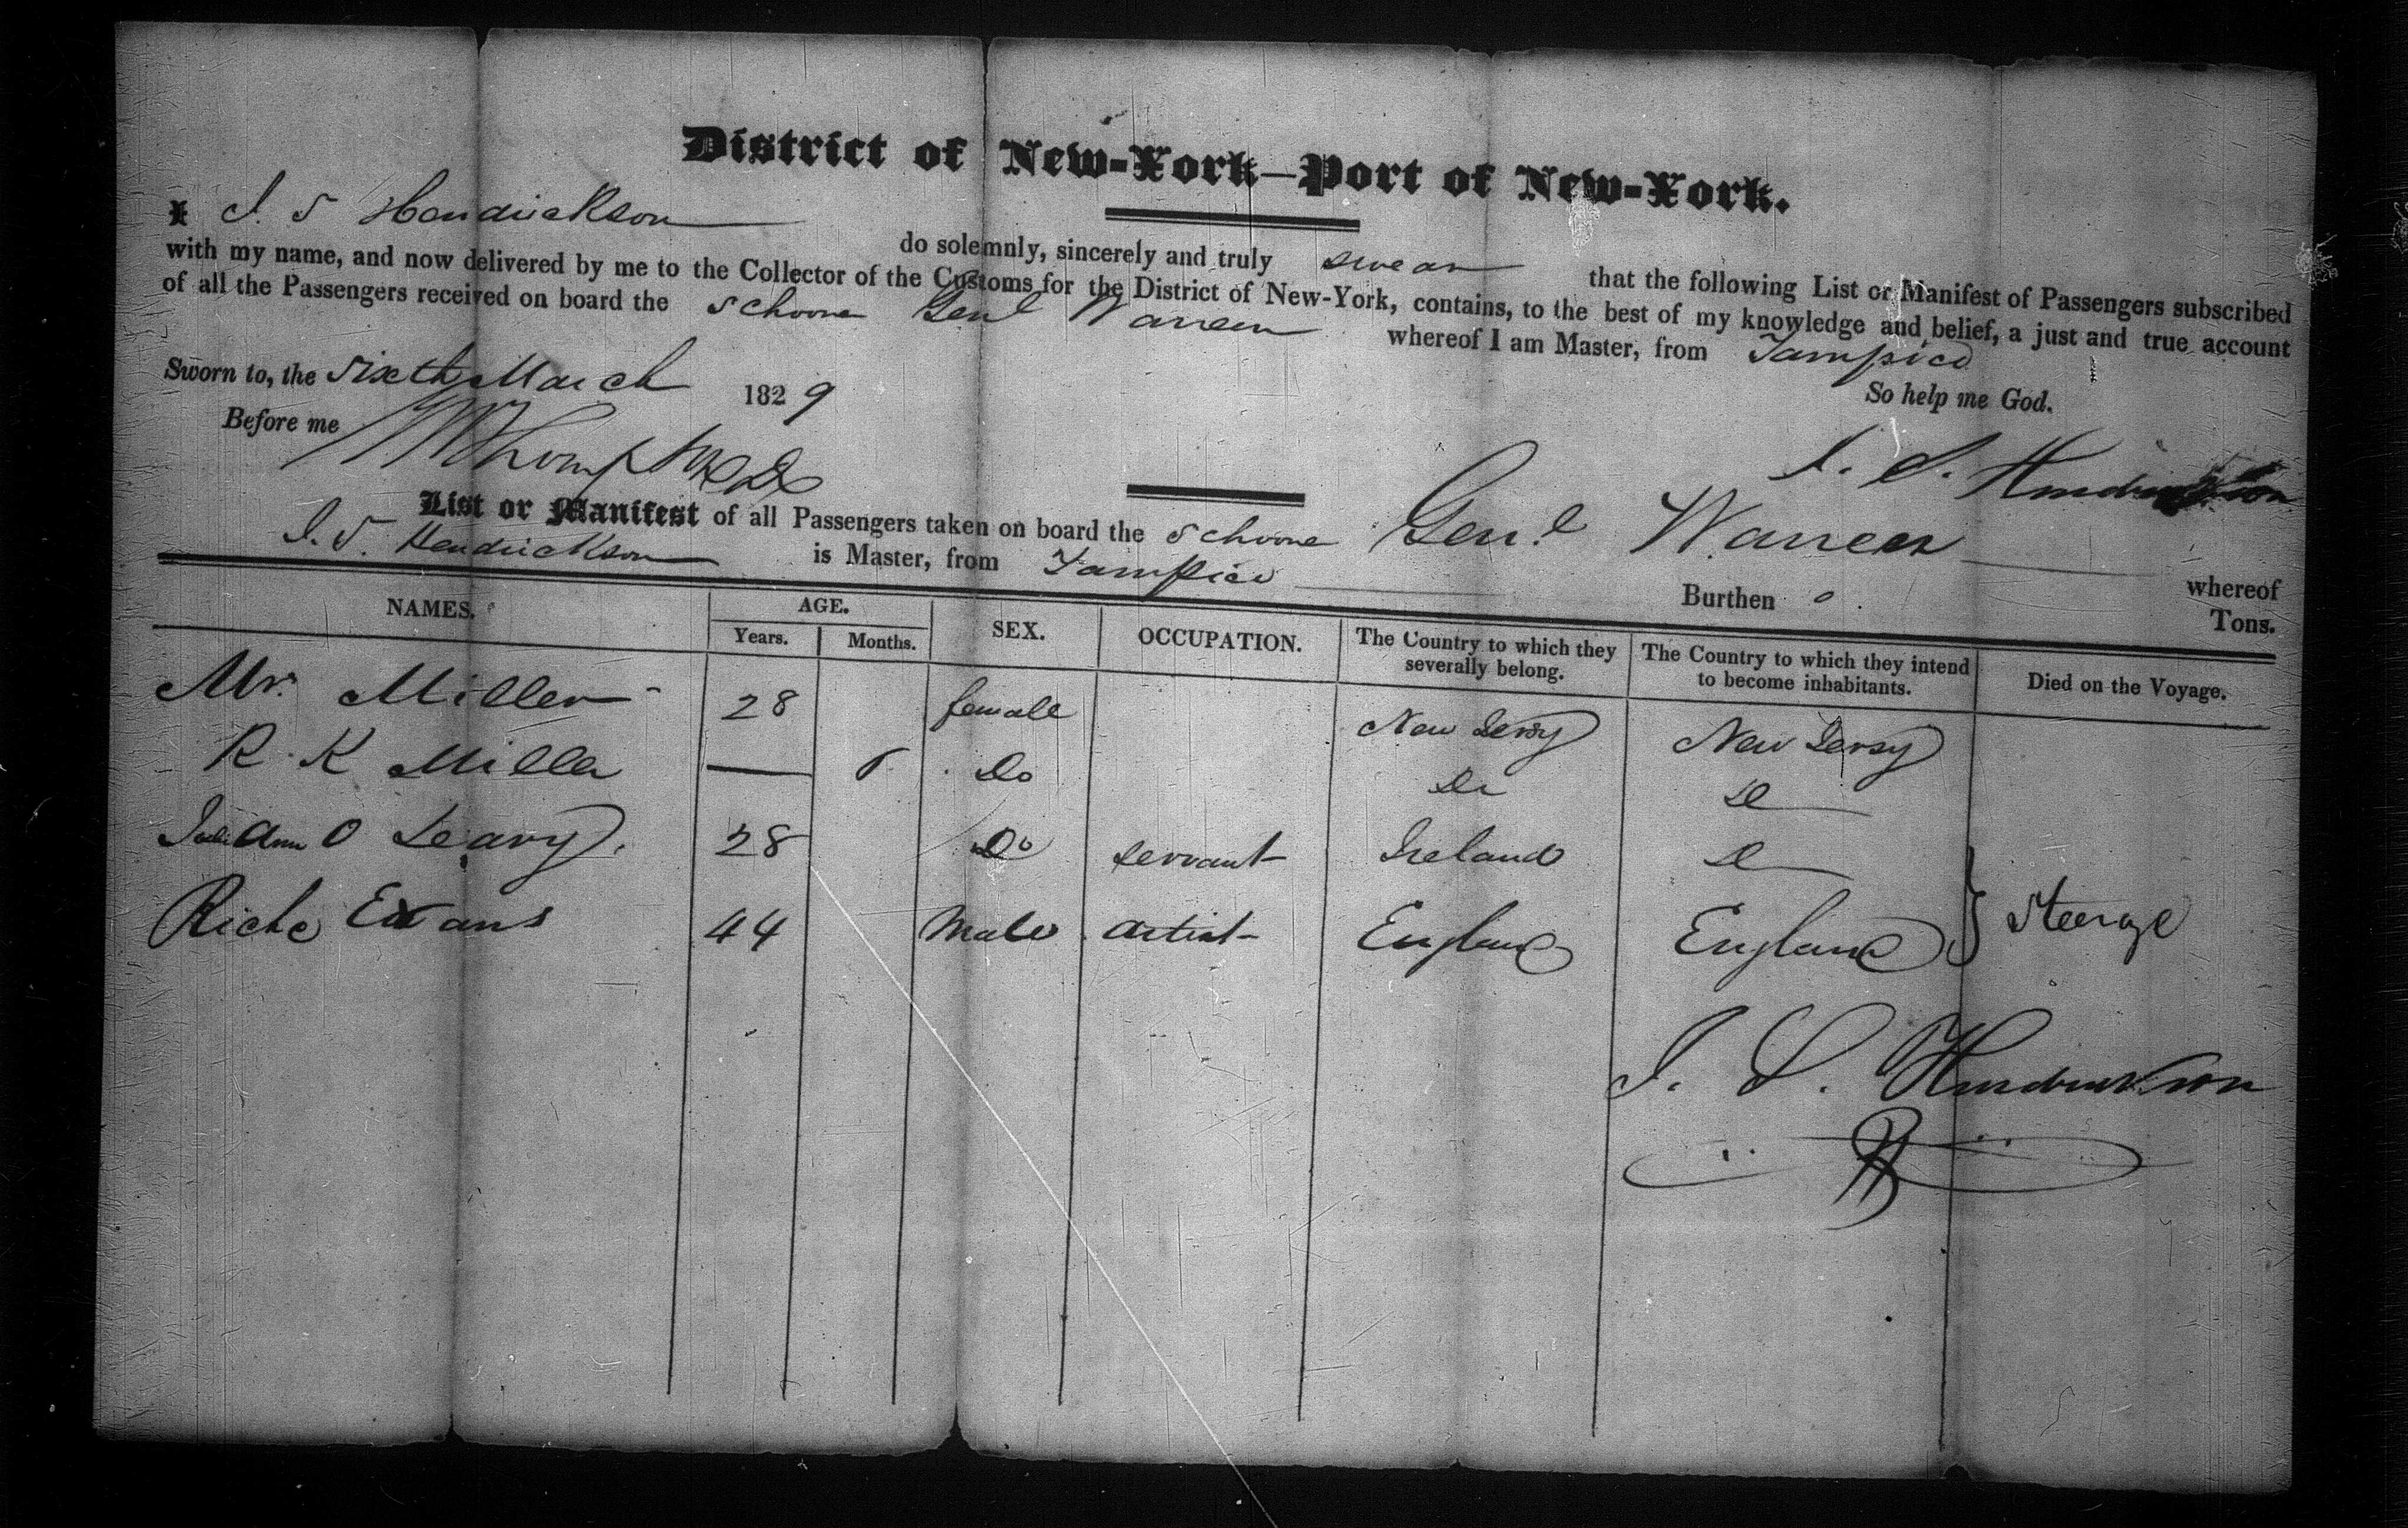 District of New-York—Port of New-York.
I J. S Hendrickson do solemnly, sincerely and truly swear that the following List or Manifest of Passengers subscribed
with my name, and now delivered by me to the Collector of the Customs for the District of New-York, contains, to the best of my knowledge and belief, a just and true account
of all the Passengers received on board the Schooner Genl Warren whereof I am Master, from Tampico
So help me God.
Sworn to, the Sixth March 1829
Before me
J. S. Hendrickson
List or Manifest of all Passengers taken on board the Schooner Genl Warren whereof
J. S. Hendrickson is Master, from Tampico Burthen Tons.
NAMES. AGE. SEX. OCCUPATION. The Country to which they severally belong. The Country to which they intend to become inhabitants. Died on the Voyage.
Years. Months.
Mr. Miller 28 female New Jersy New Jersy
R. K Miller — Do Do D
Ann O Leary. 28 Do servant Ireland D
Evans 44 Male artist England England } Steerage
J. S. Hendrickson